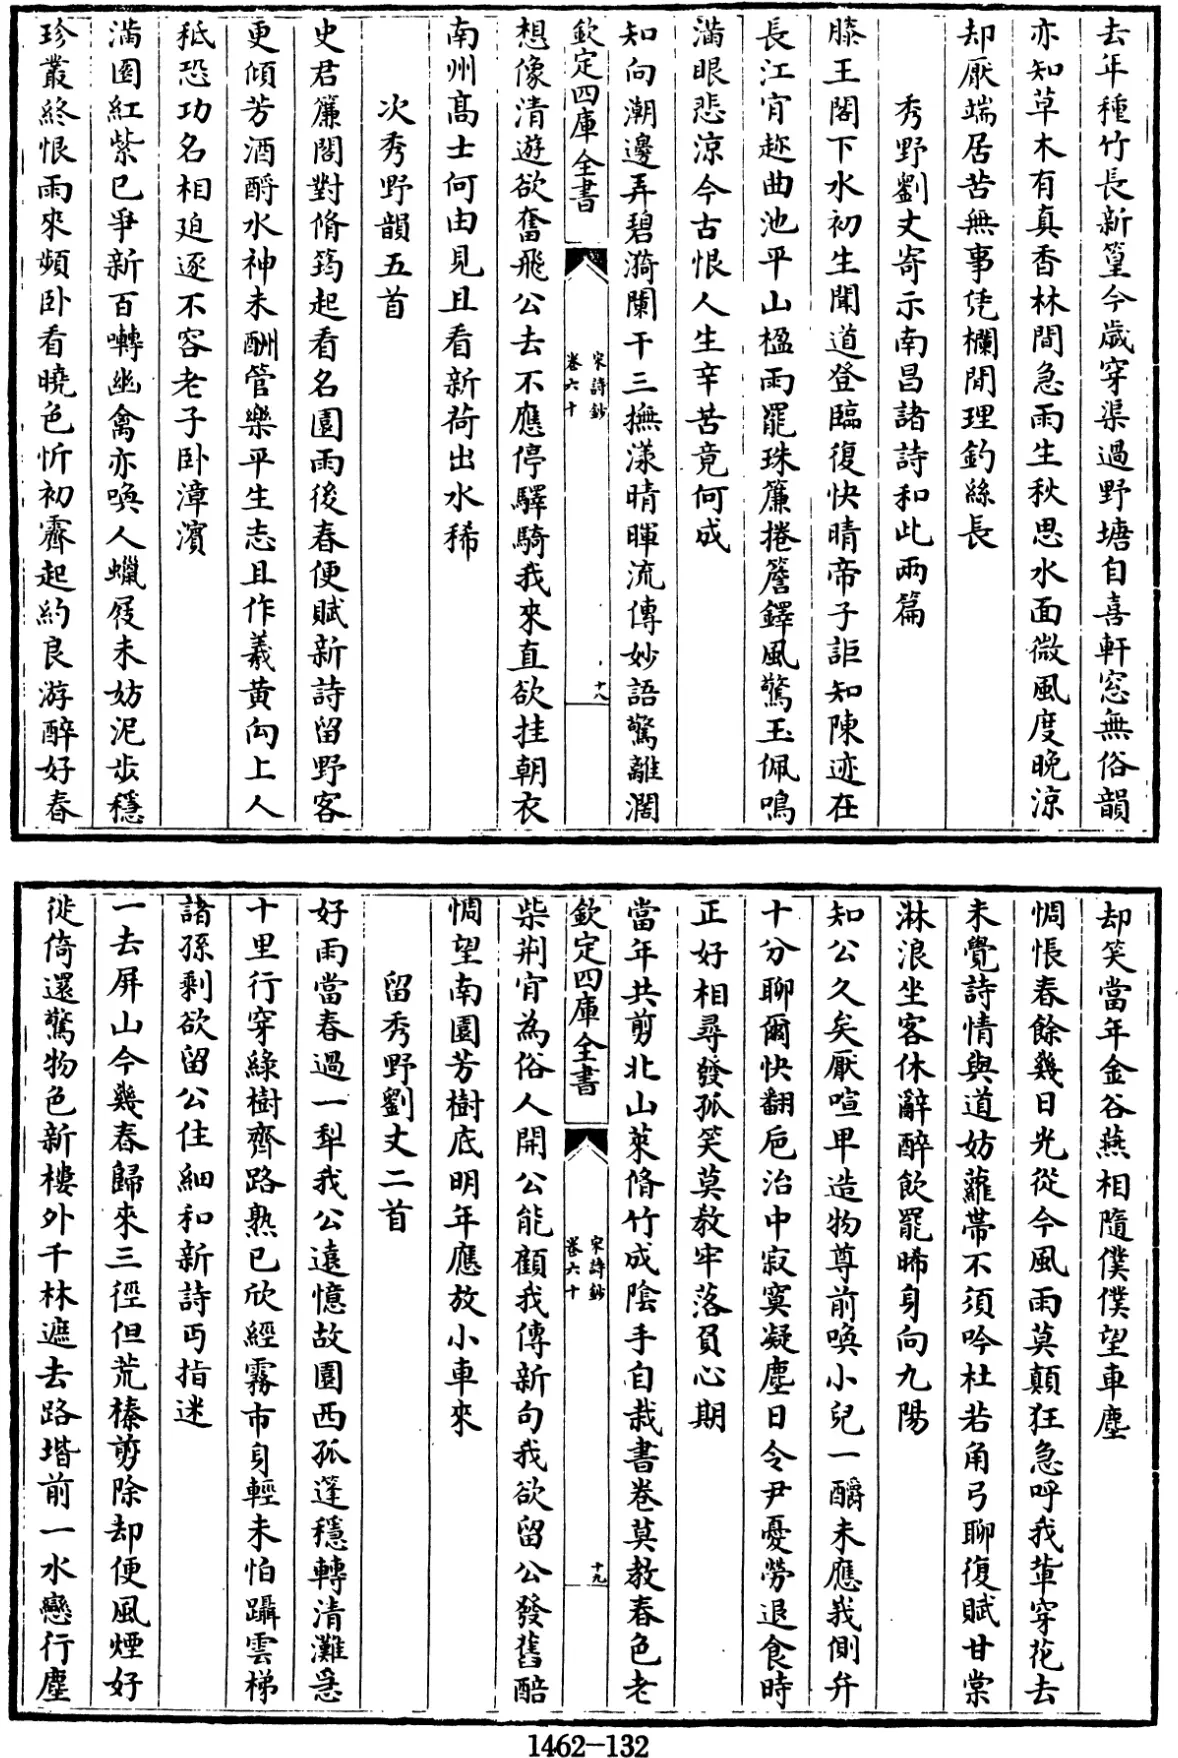 去年種竹長新篁今歲穿渠過野塘自喜軒窓無俗韻
亦知草木有真香林間急雨生秋思水面微風度晚涼
却厭端居苦無事凭欄閒理釣絲長
秀野劉丈寄示南昌諸詩和此兩篇
滕王閣下水初生聞道登臨復快晴帝子詎知陳迹在
長江肯趂曲池平山楹雨罷珠簾捲簷鐸風驚玉佩鳴
滿眼悲涼今古恨人生辛苦竟何成
知向潮邊弄碧漪闌干三撫漾晴暉流傳妙語驚離濶
欽定四庫全書
宋詩鈔
卷六十
十八
想像清遊欲奮飛公去不應停驛騎我來直欲挂朝衣
南州髙士何由見且看新荷出水稀
次秀野韻五首
史君簾閣對脩筠起看名園雨後春便賦新詩留野客
更傾芳酒酹水神未酬管樂平生志且作羲黄向上人
秪恐功名相廹逐不容老子卧漳濱
滿園紅紫已爭新百囀幽禽亦喚人蠟屐未妨泥步穩
珍叢終恨雨來頻卧看曉色忻初霽起約良游醉好春
却笑當年金谷燕相隨僕僕望車塵
惆悵春餘幾日光從今風雨莫顛狂急呼我軰穿花去
未覺詩情與道妨蘿帶不須吟杜若角弓聊復賦甘棠
淋浪坐客休辭醉飲罷晞身向九陽
知公久矣厭喧卑造物尊前喚小兒一釂未應我側弁
十分聊爾快翻巵治中寂寞凝塵日令尹憂勞退食時
正好相尋發孤笑莫教牢落負心期
當年共剪北山萊脩竹成陰手自栽書卷莫教春色老
欽定四庫全書
宋詩鈔
卷六十
十九
柴荆肯為俗人開公能顧我傳新句我欲留公發舊醅
惆望南園芳樹底明年應放小車來
留秀野劉丈二首
好雨當春過一犁我公遠憶故園西孤篷穩轉清灘急
十里行穿綠樹齊路熟已欣經霧市身輕未怕躡雲梯
諸孫剩欲留公住細和新詩丐指迷
一去屏山今幾春歸來三徑但荒榛剪除却便風煙好
徙倚還驚物色新樓外千林遮去路堦前一水戀行塵
1462—132